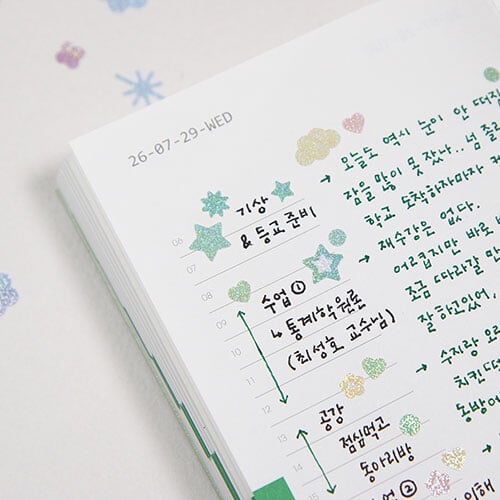 26-07-29-WED
06
07
08
09
10
11
12
13
14
기상
& 등교준비
수업 ①
↳ 통계학원론
(최성호 교수님)
공강
점심먹고
동아리방
②
→ 오늘도 역시 눈이 안 떠
잠을 많이 못 잤나.. 넘 졸
학교 도착하자마자
→ 재수강은 없다.
어렵지만 바로
조금 따라갈 만
잘하고있어,
→ 수지랑
치킨
동방에
→ 이해